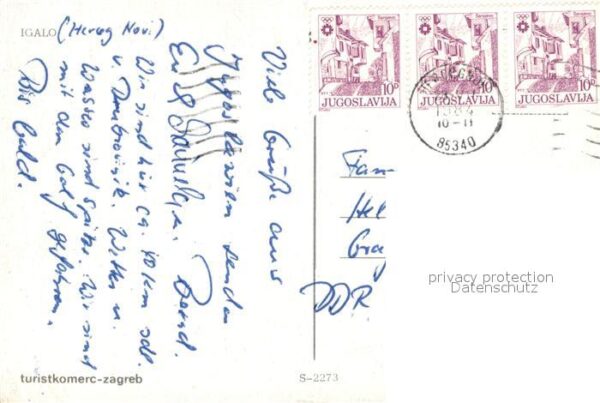 IGALO (Herceg Novi)
Viele Grüße aus
Jugoslawien senden
Bernd.
Wir sind hier ca. 40 km südl.
v. Dubrovnik. Wetter u.
Wasser sind spitze. Wir sind
mit dem Golf gefahren.
Bis bald.
10 D
JUGOSLAVIJA
10 D
JUGOSLAVIJA
10 D
JUGOSLAVIJA
10-11
85340
Fam
Hel
DDR
privacy protection
Datenschutz
turistkomerc-zagreb
S-2273